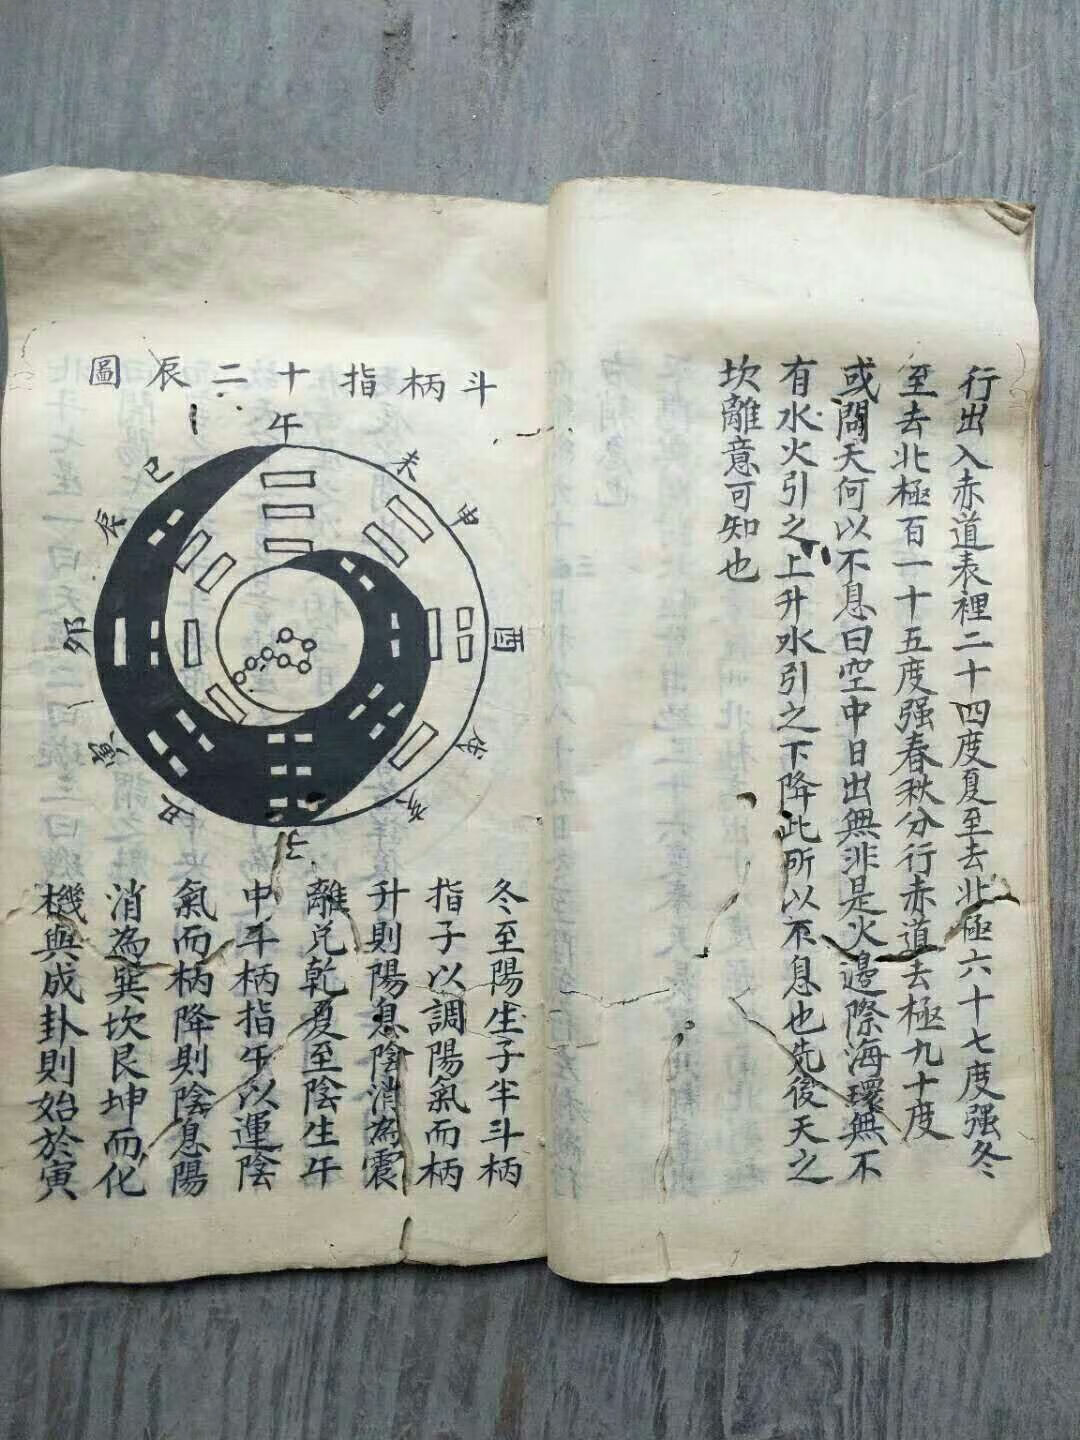 行出入赤道表裡二十四度夏至去北極六十七度强冬
至去北極百一十五度强春秋分行赤道去極九十度
或問天何以不息曰空中日出無非是火邉際海環無不
有水火引之上升水引之下降此所以不息也先後天之
坎離意可知也
斗柄指十二辰圖
午
未
申
酉
戌
亥
子
丑
寅
卯
辰
巳
冬至陽生子半斗柄
指子以調陽氣而柄
升則陽息陰消為震
離兌乾夏至陰生午
中斗柄指午以運陰
氣而柄降則陰息陽
消為巽坎艮坤而化
機與成卦則始於寅